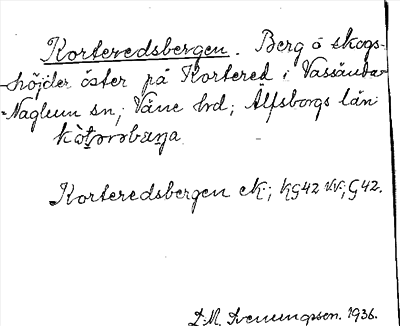 Korteredsbergen. Berg o skogs-
höjder öster på Kortered i Vassända-
-Naglum sn, Väne hd; Älfsborgs län.
Korteredsbergen eK; KG42 VV; G42.
D.M. Svenungsson. 1936.